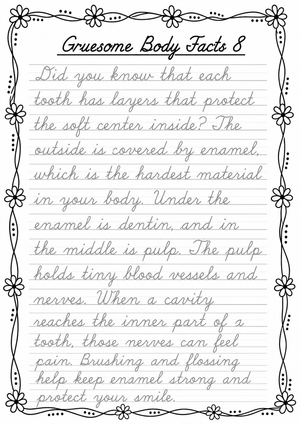 Gruesome Body Facts 8
Did you know that each
tooth has layers that protect
the soft center inside? The
outside is covered by enamel,
which is the hardest material
in your body. Under the
enamel is dentin, and in
the middle is pulp. The pulp
holds tiny blood vessels and
nerves. When a cavity
reaches the inner part of a
tooth, those nerves can feel
pain. Brushing and flossing
help keep enamel strong and
protect your smile.